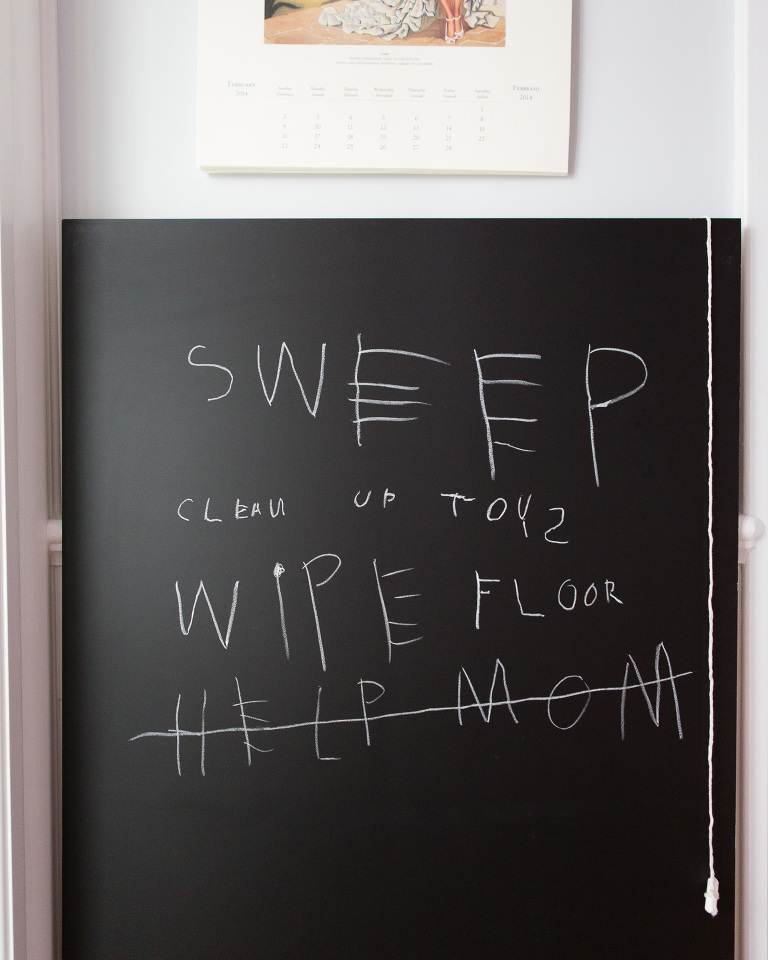 FEBRUARY
2014
FEBRUARY
2014
1
2 3 4 5 6 7 8
9 10 11 12 13 14 15
16 17 18 19 20 21 22
23 24 25 26 27 28
SWEEP
CLEAN UP TOYZ
WIPE FLOOR
HELP MOM